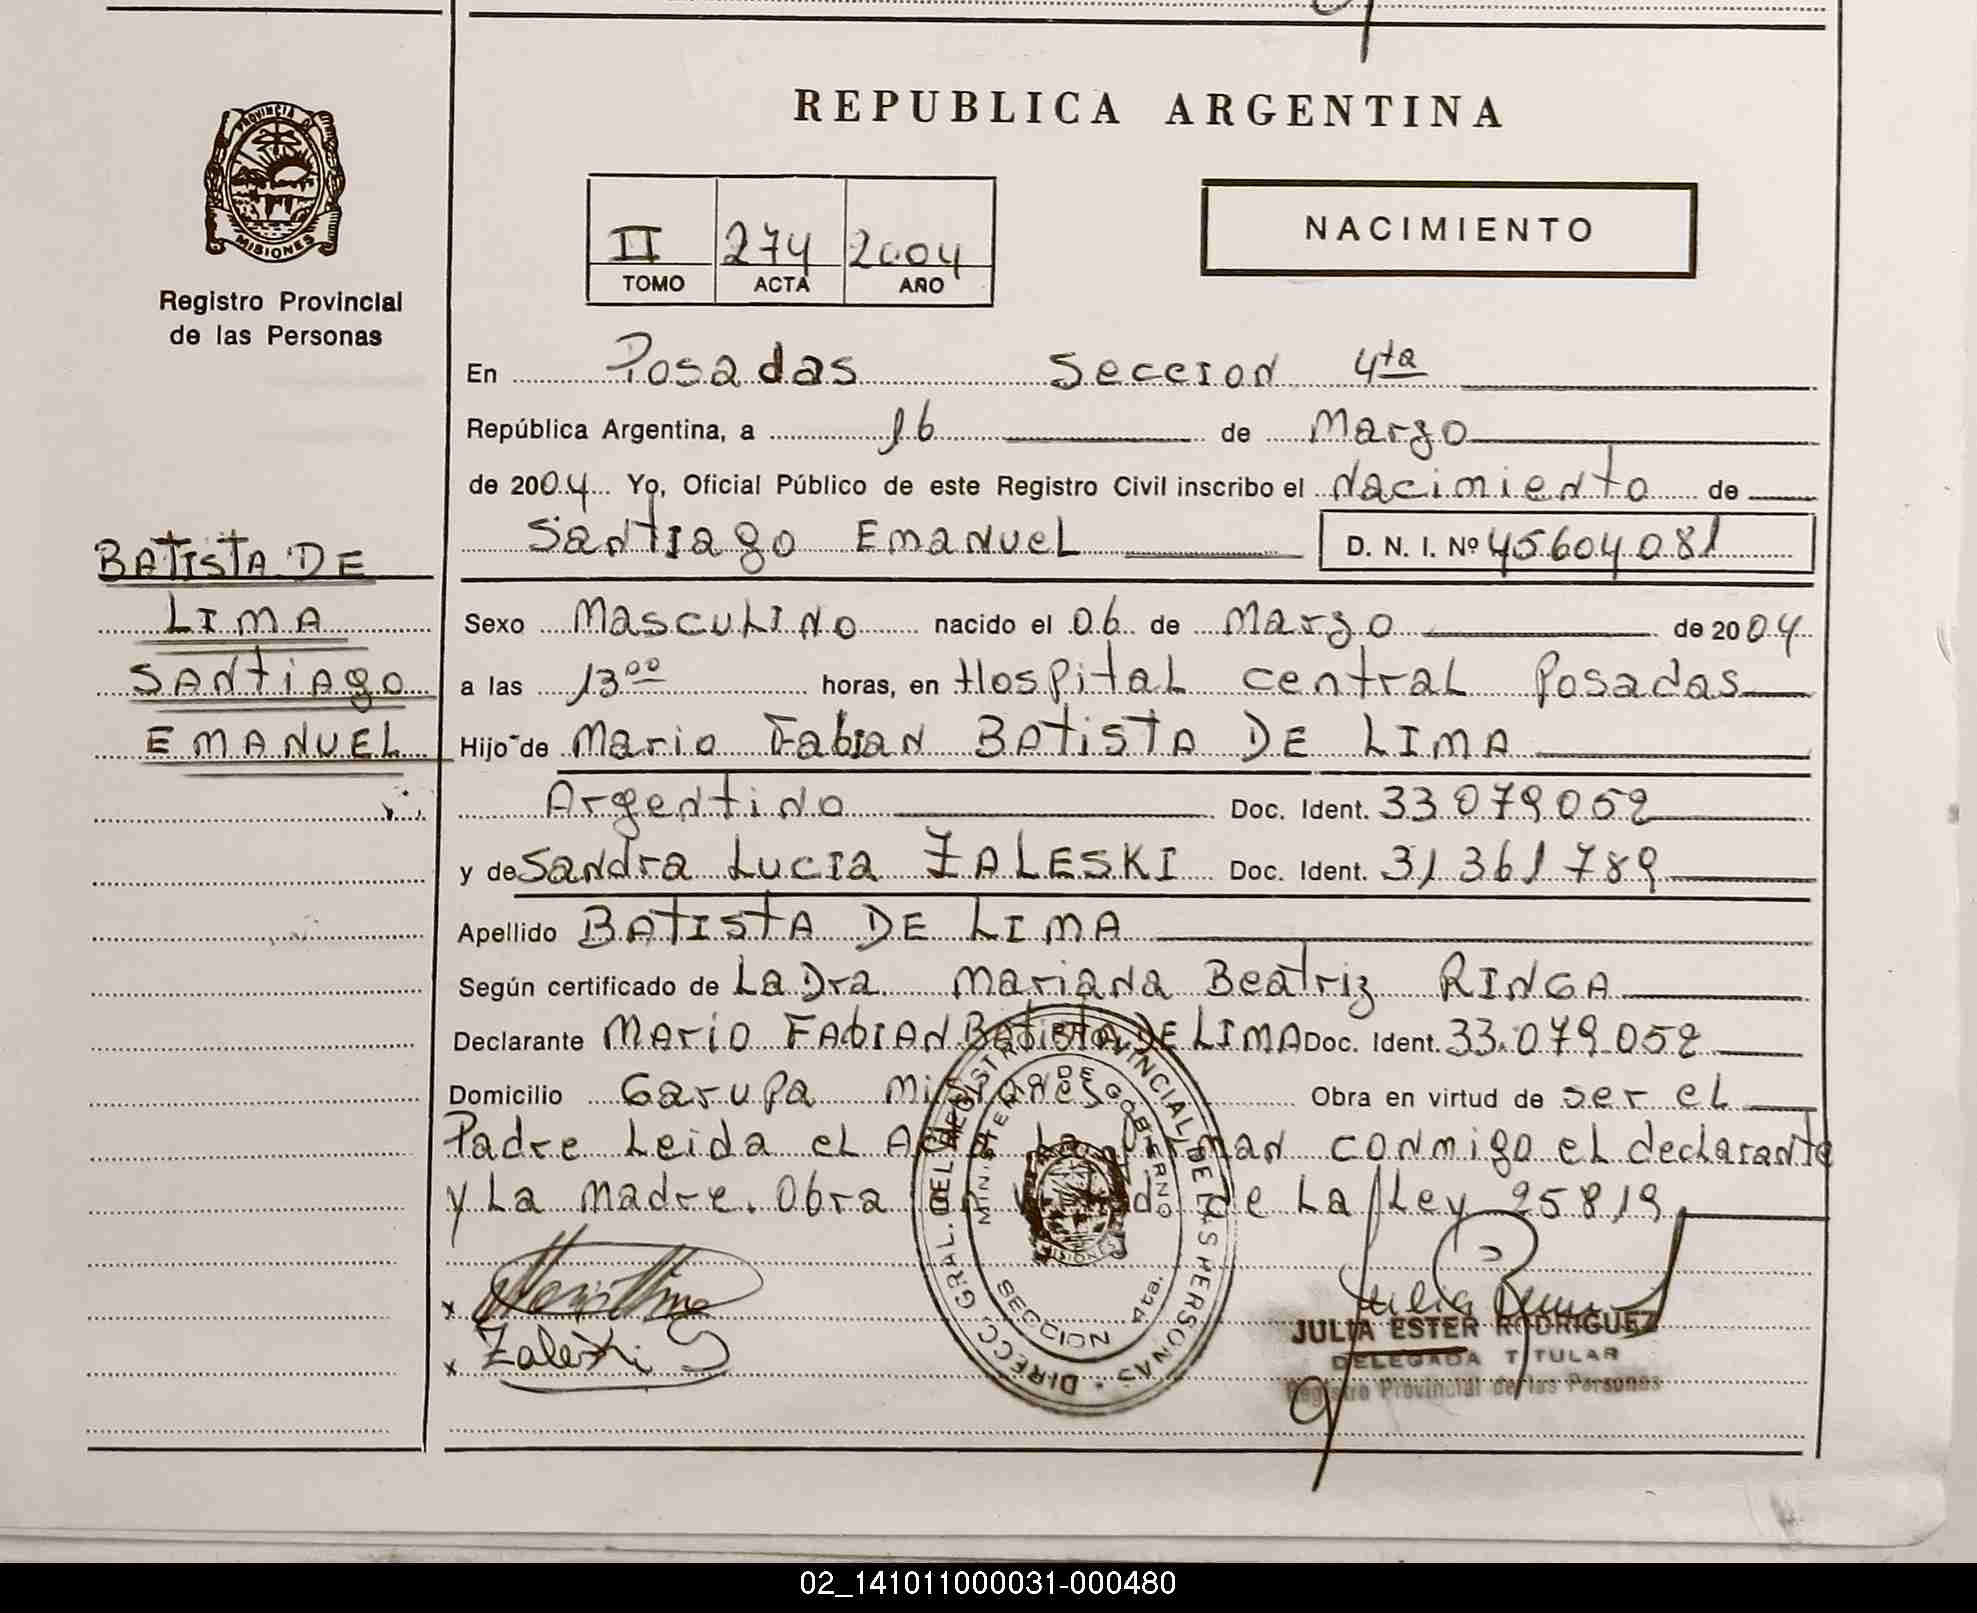 REPUBLICA ARGENTINA
PROVINCIA DE
MISIONES
Registro Provincial
de las Personas
II 274 2004
TOMO ACTA AÑO
NACIMIENTO
En Posadas Seccion 4ta
República Argentina, a 16 de Marzo
de 2004 Yo, Oficial Público de este Registro Civil inscribo el Nacimiento de
Santiago Emanuel D. N. I. Nº 45604081
BATISTA DE
LIMA
SANTIAGO
EMANUEL
Sexo Masculino nacido el 06 de Marzo de 2004
a las 13 00 horas, en Hospital central Posadas
Hijo de Mario Fabian BATISTA DE LIMA
Argentino Doc. Ident. 33.079.052
y de Sandra Lucia ZALESKI Doc. Ident. 31.361.789
Apellido BATISTA DE LIMA
Según certificado de La Dra. Mariana Beatriz RINGA
Declarante MARIO FABIAN Batista DE LIMA Doc. Ident. 33.079.052
Domicilio Garupa Misiones Obra en virtud de ser el
Padre Leida el Acta La firman conmigo el declarante
y La madre. Obra en virtud de La Ley 25819
DIRECC. GRAL. DEL REGISTRO PROVINCIAL DE LAS PERSONAS
MINISTERIO DE GOBIERNO
MISIONES
SECCION 4ta.
x
x Zaleski S
JULIA ESTER RODRIGUEZ
DELEGADA TITULAR
Registro Provincial de las Personas
02_141011000031-000480